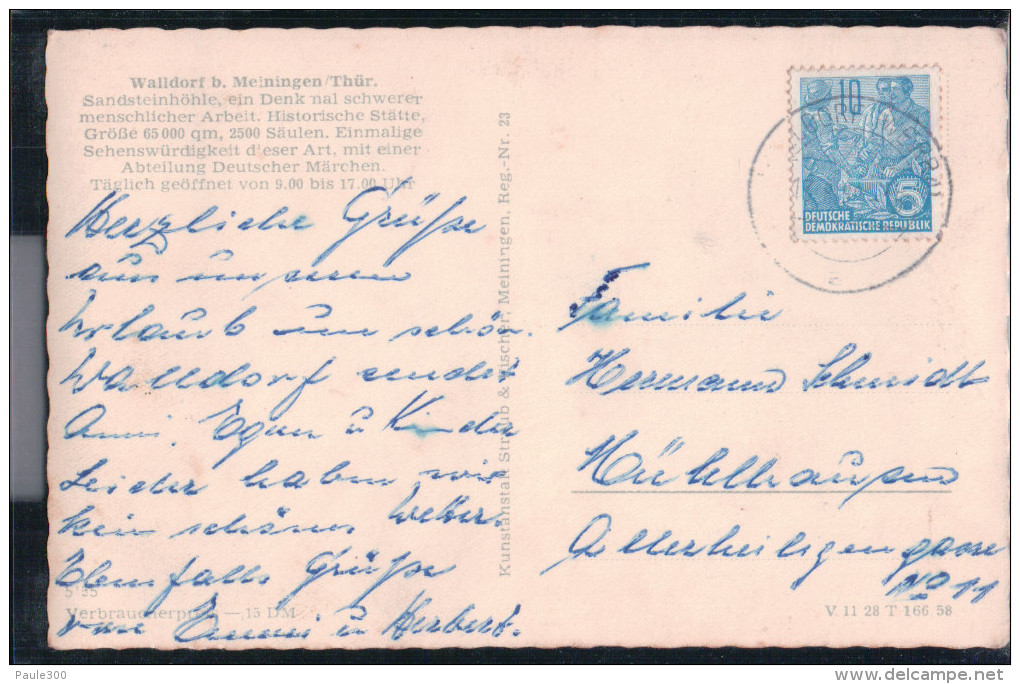 Walldorf b. Meiningen/Thür.
Sandsteinhöhle, ein Denk nal schwerer
menschlicher Arbeit. Historische Stätte,
Größe 65 000 qm, 2500 Säulen. Einmalige
Sehenswürdigkeit d'eser Art, mit einer
Abteilung Deutscher Märchen.
Täglich geöffnet von 9.00 bis 17.00 Uhr
Herzliche Grüße
aus unseren
Urlaub um schön.
Walldorf sendet
Anni, Egon u Kinder
Leider haben wir
kein schönes Wetter.
Ebenfalls Grüße
von Emmi u Herbert.
5 35
Verbraucherpreis — ,15 DM
Kunstanstalt Straub & Fischer, Meiningen, Reg.-Nr. 23
10
5
DEUTSCHE
DEMOKRATISCHE REPUBLIK
Familie
Herrmann Schmidt
Mühlhausen
Allerheiligengasse
No 11
V 11 28 T 166 58
Paule300